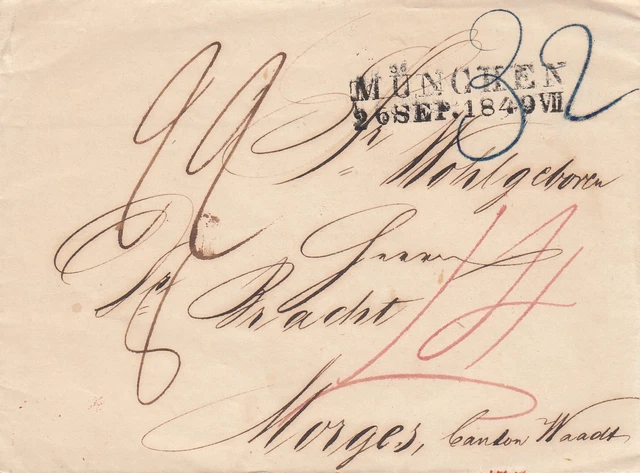 MÜNCHEN
26 SEP. 1849 VII
32
Sr Wohlgeboren
Herrn
Dr Pracht
14
Morges, Canton Waadt